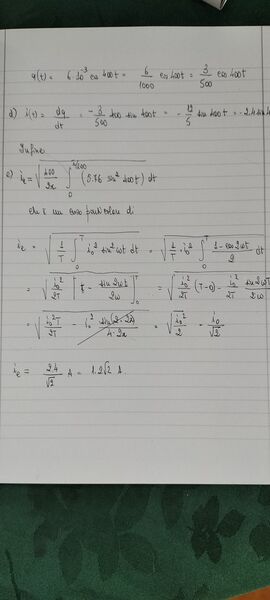 q(t) = 6·10⁻³ cos 400t = 6/1000 cos 400t = 3/500 cos 400t
d) i(t) = dq/dt = -3/500 400 sin 400t = -12/5 sin 400t = -2.4 sin
Infine
e) i_e = √(400/2π ∫₀^(2π/400) (5.76 sin² 400t) dt
che è un caso particolare di
i_e = √(1/T ∫₀ᵀ i₀² sin² ωt dt) = √(1/T · i₀² ∫₀ᵀ (1 - cos 2ωt)/2 dt
= √(i₀²/2T [t - sin 2ωt/2ω]₀ᵀ = √(i₀²/2T (T-0) - i₀²/2T sin 2ωT/2ω
= √(i₀²T/2T - i₀² sin(2·2π)/4·2π = √(i₀²/2) = i₀/√2
i_e = 2.4/√2 A = 1.2√2 A.